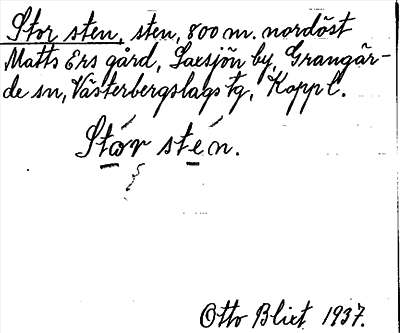 Stor sten, sten, 800 m. nordöst
Matts Ers gård, Saxsjön by, Grangär-
de sn, Västerbergslags tg, Koppl.
Stór stén.
Otto Blixt 1937.